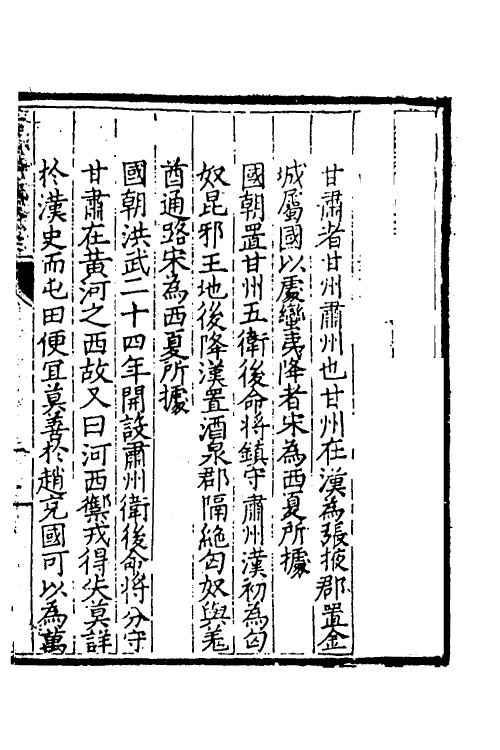 甘肅者甘州肅州也甘州在漢為張掖郡置金
城屬國以處蠻夷降者宋為西夏所據
國朝置甘州五衛後命將鎮守肅州漢初為匈
奴昆邪王地後降漢置酒泉郡隔絶匈奴與羗
酋通路宋為西夏所據
國朝洪武二十四年開設肅州衛後命將分守
甘肅在黃河之西故又曰河西禦戎得失莫詳
於漢史而屯田便宜莫善於趙充國可以為萬